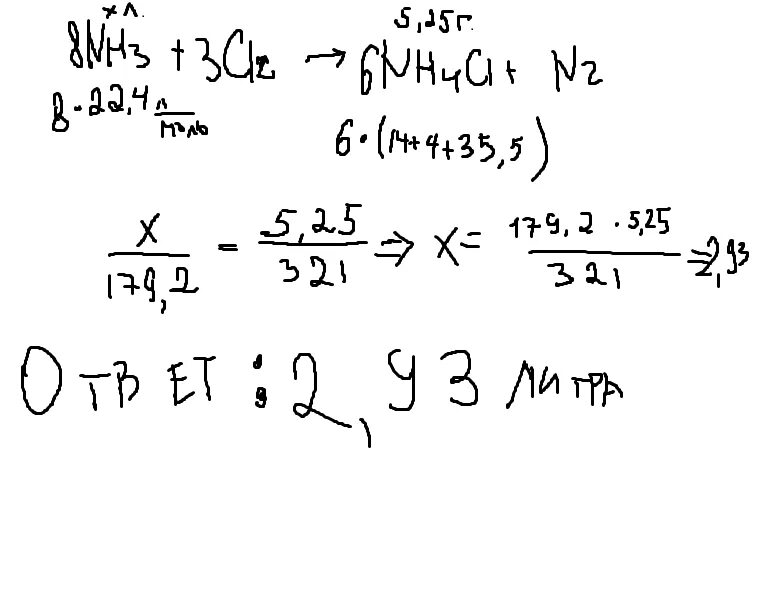 x л. 5,25г.
8NH3 + 3Cl2 → 6NH4Cl + N2
8·22,4 л/моль 6·(14+4+35,5)
x/179,2 = 5,25/321 ⇒ x = 179,2 · 5,25/321 = 2,93
Ответ: 2,93 литра